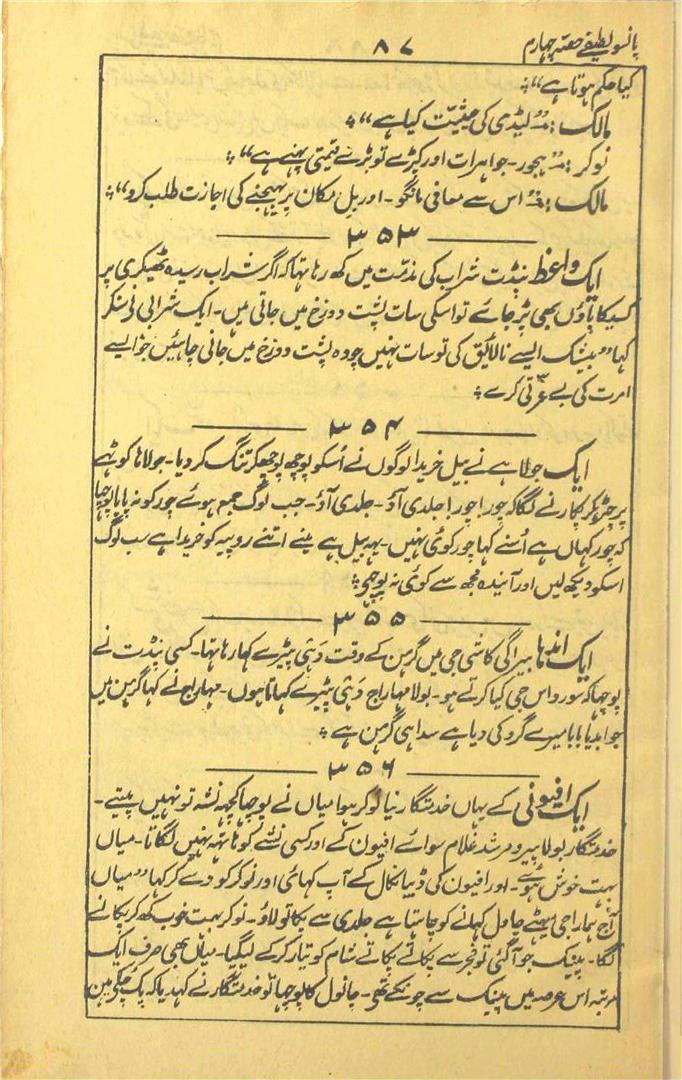 پانسو لطیفے حصہ چہارم ۸۷
کیا حکم ہوتا ہے“؞
مالک :۔ ”لیڈی کی حیثیت کیا ہے“؞
نوکر :۔ ”ہجور۔ جواہرات اور کپڑے تو بڑے قیمتی پہنے ہے“؞
مالک :۔ ”اس سے معافی مانگو۔ اور بل مکان پر بھیجنے کی اجازت طلب کرو“؞
۳۵۳
ایک واعظ پنڈت شراب کی مذمت میں کہہ رہا تہا کہ اگر شراب رسیدہ ٹھیکری پر
کسیکا پاؤں بھی پڑ جائے تو اسکی سات پشت دوزخ میں جاتی ہیں۔ ایک شرابی نے سنکر
کہا ”بیشک ایسے نالائق کی تو سات نہیں چودہ پشت دوزخ میں جانی چاہئیں جو ایسے
امرت کی بے عزتی کرے؞
۳۵۴
ایک جولاہے نے بیل خریدا لوگوں نے اُسکو پوچھ پوچھکر تنگ کر دیا۔ جولاہا کوٹہے
پر چڑھکر پکارنے لگا کہ چور! چور! جلدی آؤ۔ جلدی آؤ۔ جب لوگ جمع ہوئے چور کو نہ پایا پوچہا
کہ چور کہاں ہے اُسنے کہا چور کوئی نہیں۔ یہہ بیل ہے مینے اتنے روپیہ کو خریدا ہے سب لوگ
اسکو دیکھ لیں اور آئندہ مجھ سے کوئی نہ پوچہے؞
۳۵۵
ایک اندہا بیراگی کاشی جی میں گرہن کے وقت دہی پیڑے کہا رہا تہا۔ کسی پنڈت نے
پوچہا کہ سورداس جی کیا کرتے ہو۔ بولا مہاراج دہی پیڑے کہاتا ہوں۔ مہاراج نے کہا گرہن میں
جوابدیا بابا میرے گرو کی دیا ہے سدا ہی گرہن ہے؞
۳۵۶
ایک افیونی کے یہاں خدمتگار نیا نوکر ہوا میاں نے پوچہا کچہہ نشہ تو نہیں پیتے۔
خدمتگار بولا پیر و مرشد غلام سوائے افیون کے اور کسی نشے کو ہاتہہ نہیں لگاتا۔ میاں
بہت خوش ہوئے۔ اور افیون کی ڈبیا نکال کے آپ کہائی اور نوکر کو دے کر کہا ”میاں
آج ہمارا جی میٹہے چانول کہانے کو چاہتا ہے جلدی سے پکا تو لاؤ۔ نوکر بہت خوب کہہ کر پکانے
لگا۔ پینک جو آگئی تو فجر سے پکاتے پکاتے شام کو تیار کر کے لیگیا۔ میاں بھی صرف ایک
مرتبہ اس عرصہ میں پینک سے چونکے تھے۔ چانول کا پوچہا تو خدمتگار نے کہدیا کہ پک چکے ہیں